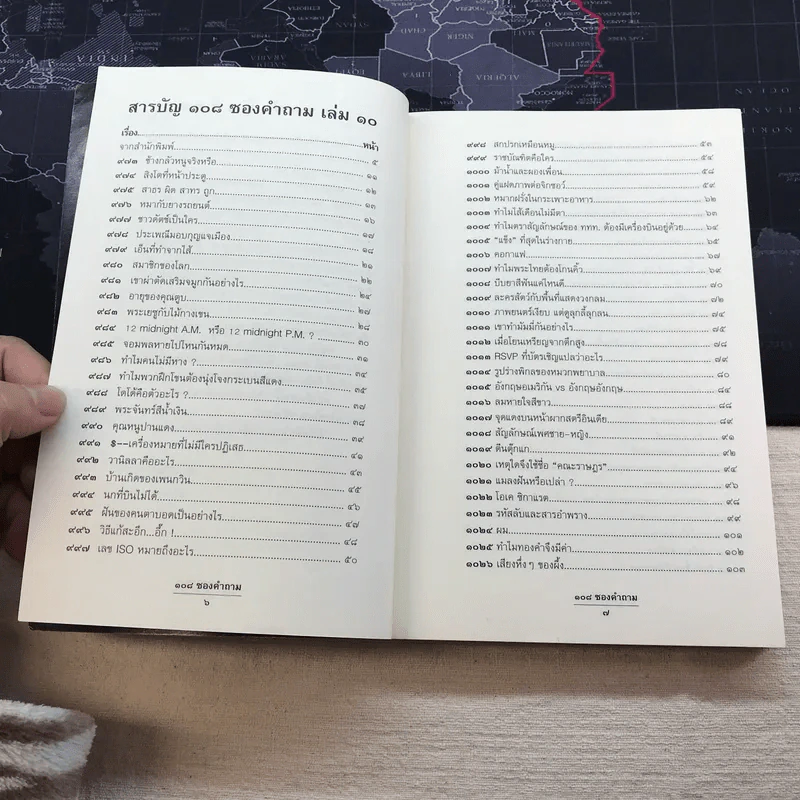 สารบัญ ๑๐๘ ซองคำถาม เล่ม ๑๐
เรื่อง..........หน้า
จากสำนักพิมพ์..........๕
๙๗๓ ช้างกลัวหนูจริงหรือ..........
๙๗๔ สิงโตที่หน้าประตู..........๑๑
๙๗๕ สาธร ผิด สาทร ถูก..........๑๒
๙๗๖ หมากับยางรถยนต์..........๑๓
๙๗๗ ชาวดัตช์เป็นใคร..........๑๖
๙๗๘ ประเพณีมอบกุญแจเมือง..........๑๗
๙๗๙ เอ็นที่ทำจากไส้..........๑๘
๙๘๐ สมาชิกของโลก..........๒๑
๙๘๑ เขาผ่าตัดเสริมจมูกกันอย่างไร..........๒๒
๙๘๒ อายุของคุณตูบ..........๒๔
๙๘๓ พระเยซูกับไม้กางเขน..........๒๘
๙๘๔ 12 midnight A.M. หรือ 12 midnight P.M. ?..........๓๐
๙๘๕ จอมพลหายไปไหนกันหมด..........๓๑
๙๘๖ ทำไมคนไม่มีหาง ?..........๓๔
๙๘๗ ทำไมพวกฝึกโขนต้องนุ่งโจงกระเบนสีแดง..........๓๕
๙๘๘ โดโด้คือตัวอะไร ?..........๓๗
๙๘๙ พระจันทร์สีน้ำเงิน..........๓๘
๙๙๐ คุณหนูปานแดง..........๓๙
๙๙๑ $--เครื่องหมายที่ไม่มีใครปฏิเสธ..........๔๑
๙๙๒ วานิลลาคืออะไร..........๔๓
๙๙๓ บ้านเกิดของเพนกวิน..........๔๕
๙๙๔ นกที่บินไม่ได้..........๔๖
๙๙๕ ฝันของคนตาบอดเป็นอย่างไร..........๔๗
๙๙๖ วิธีแก้สะอึก...อึ๊ก !..........๔๘
๙๙๗ เลข ISO หมายถึงอะไร..........๕๐
๑๐๘ ซองคำถาม
๖
๙๙๘ สกปรกเหมือนหมู..........๕๓
๙๙๙ ราชบัณฑิตคือใคร..........๕๔
๑๐๐๐ ม้าน้ำและผองเพื่อน..........๕๗
๑๐๐๑ คู่แฝดภาพต่อจิกซอว์..........๕๙
๑๐๐๒ หมากฝรั่งในกระเพาะอาหาร..........๖๒
๑๐๐๓ ทำไมไส้เดือนไม่มีตา..........๖๓
๑๐๐๔ ทำไมตราสัญลักษณ์ของ ททท. ต้องมีเครื่องบินอยู่ด้วย..........๖๔
๑๐๐๕ "แข็ง" ที่สุดในร่างกาย..........๖๕
๑๐๐๖ คอกาแฟ..........๖๗
๑๐๐๗ ทำไมพระไทยต้องโกนคิ้ว..........๖๙
๑๐๐๘ บีบยาสีฟันแค่ไหนดี..........๗๐
๑๐๐๙ ละครสัตว์กับพื้นที่แสดงวงกลม..........๗๒
๑๐๑๐ ภาพยนตร์เงียบ แต่ดูลุกลี้ลุกลน..........๗๔
๑๐๑๑ เขาทำมัมมี่กันอย่างไร..........๗๕
๑๐๑๒ เมื่อโยนเหรียญจากตึกสูง..........๗๘
๑๐๑๓ RSVP ที่บัตรเชิญแปลว่าอะไร..........๗๙
๑๐๑๔ รูปร่างพิกลของหมวกพยาบาล..........๘๒
๑๐๑๕ อังกฤษอเมริกัน vs อังกฤษอังกฤษ..........๘๔
๑๐๑๖ ลมหายใจสีขาว..........๘๘
๑๐๑๗ จุดแดงบนหน้าผากสตรีอินเดีย..........๘๙
๑๐๑๘ สัญลักษณ์เพศชาย-หญิง..........๙๑
๑๐๑๙ ตีนตุ๊กแก..........๙๒
๑๐๒๐ เหตุใดจึงใช้ชื่อ "คณะราษฎร"..........๙๔
๑๐๒๑ แมลงฝันหรือเปล่า ?..........๙๖
๑๐๒๒ โอเค ซิกาแรต..........๙๘
๑๐๒๓ รหัสลับและสารอำพราง..........๙๙
๑๐๒๔ ผม..........๑๐๑
๑๐๒๕ ทำไมทองคำจึงมีค่า..........๑๐๒
๑๐๒๖ เสียงหึ่งๆ ของผึ้ง..........๑๐๓
๑๐๘ ซองคำถาม
๗